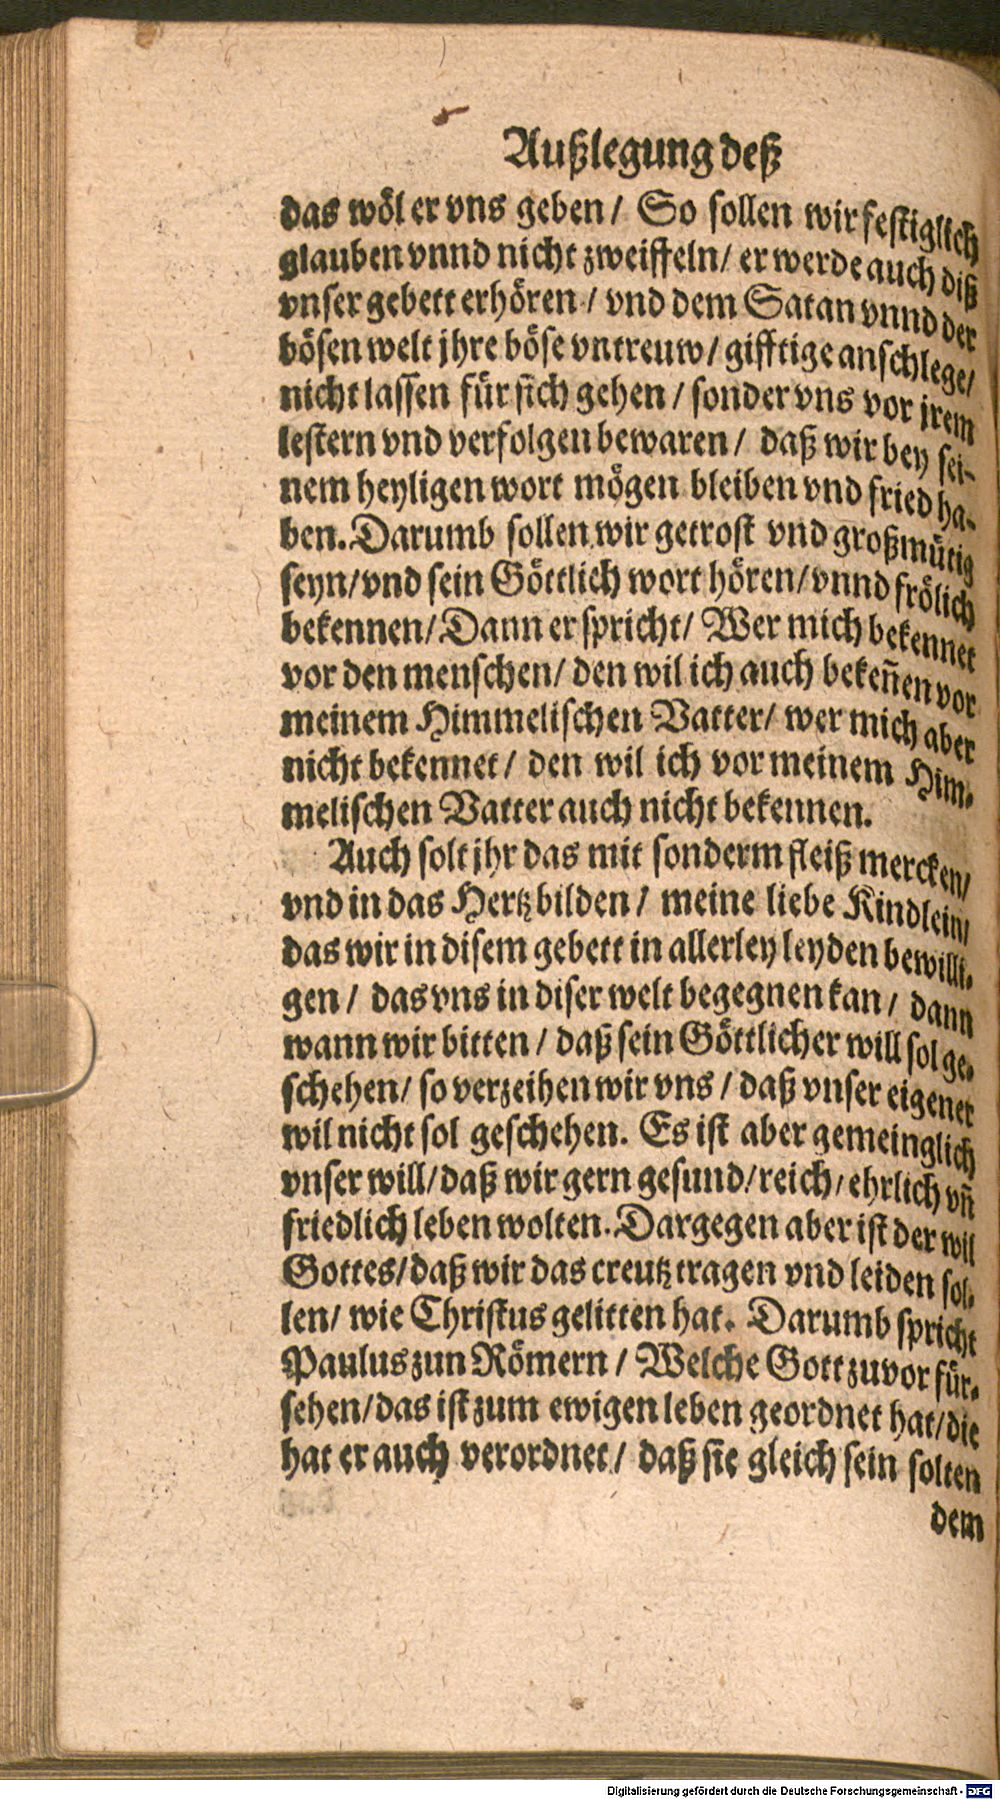 Außlegung deß
das wöl er vns geben/ So sollen wir festiglich
glauben vnnd nicht zweiffeln/ er werde auch diß
vnser gebett erhören / vnd dem Satan vnnd der
bösen welt jhre böse vntreuw/ gifftige anschlege/
nicht lassen für sich gehen / sonder vns vor jrem
lestern vnd verfolgen bewaren / daß wir bey sei-
nem heyligen wort mögen bleiben vnd fried ha-
ben. Darumb sollen wir getrost vnd großmütig
seyn/ vnd sein Göttlich wort hören/ vnnd frölich
bekennen/ Dann er spricht/ Wer mich bekennet
vor den menschen/ den wil ich auch bekeñen vor
meinem Himmelischen Vatter/ wer mich aber
nicht bekennet / den wil ich vor meinem Him-
melischen Vatter auch nicht bekennen.
Auch solt jhr das mit sonderm fleiß mercken/
vnd in das Hertz bilden / meine liebe Kindlein/
das wir in disem gebett in allerley leyden bewilli-
gen / das vns in diser welt begegnen kan / dann
wann wir bitten / daß sein Göttlicher will sol ge-
schehen/ so verzeihen wir vns / daß vnser eigener
wil nicht sol geschehen. Es ist aber gemeinglich
vnser will/ daß wir gern gesund/ reich/ ehrlich vñ
friedlich leben wolten. Dargegen aber ist der wil
Gottes/ daß wir das creutz tragen vnd leiden sol-
len/ wie Christus gelitten hat. Darumb spricht
Paulus zun Römern / Welche Gott zuvor für-
sehen/ das ist zum ewigen leben geordnet hat/ die
hat er auch verordnet / daß sie gleich sein solten
dem
Digitalisierung gefördert durch die Deutsche Forschungsgemeinschaft - DFG